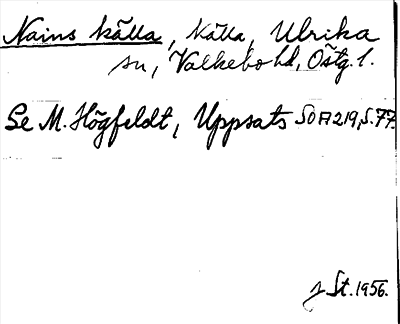 Nains källa, källa, Ulrika
sn, Valkebo hd, Östg. l.
Se M. Högfeldt, Uppsats SOFI 219, s. 77.
St. 1956.